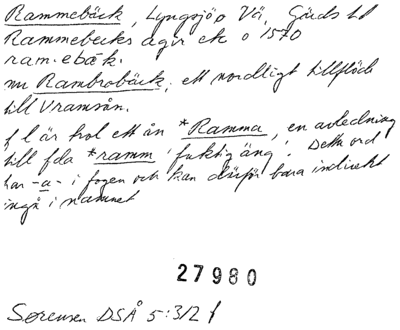 Rammebäck, Lyngsjö o Vä, Gärds hd
Rammebecks ager etc o 1570
ram·ebäk.
nu Rambrobäck, ett nordligt tillflöde
till Vramsån.
f l är trol ett ån *Ramma, en avledning
till fda *ramm 'fuktig äng'. Detta ord
har -a- i fogen och kan därför bara indirekt
ingå i namnet
27980
Sørensen DSÅ 5:312 f